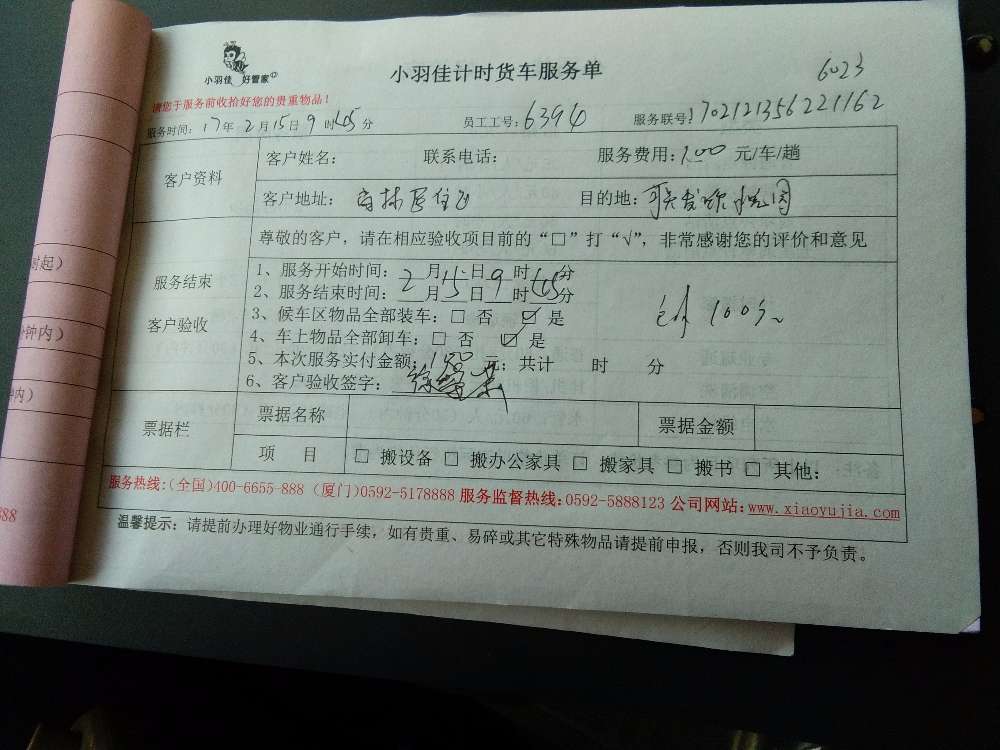 小羽佳 好管家
小羽佳计时货车服务单
6023
请您于服务前收拾好您的贵重物品！
服务时间：17年2月15日9时45分 员工工号：6394 服务联号：1702121356221162
客户资料
客户姓名： 联系电话： 服务费用：100 元/车/趟
客户地址： 目的地：
尊敬的客户，请在相应验收项目前的“□”打“√”，非常感谢您的评价和意见
服务结束
客户验收
1、服务开始时间：2月15日9时45分
2、服务结束时间：2月15日9时45分
3、候车区物品全部装车：□ 否 ☑ 是
4、车上物品全部卸车：□ 否 ☑ 是
5、本次服务实付金额：100元；共计 时 分
6、客户验收签字：
100元
票据栏
票据名称 票据金额
项 目 □ 搬设备 □ 搬办公家具 □ 搬家具 □ 搬书 □ 其他：
服务热线：（全国）400-6655-888（厦门）0592-5178888 服务监督热线：0592-5888123 公司网站：www.xiaoyujia.com
温馨提示：请提前办理好物业通行手续，如有贵重、易碎或其它特殊物品请提前申报，否则我司不予负责。
时起）
钟内）
内）
888